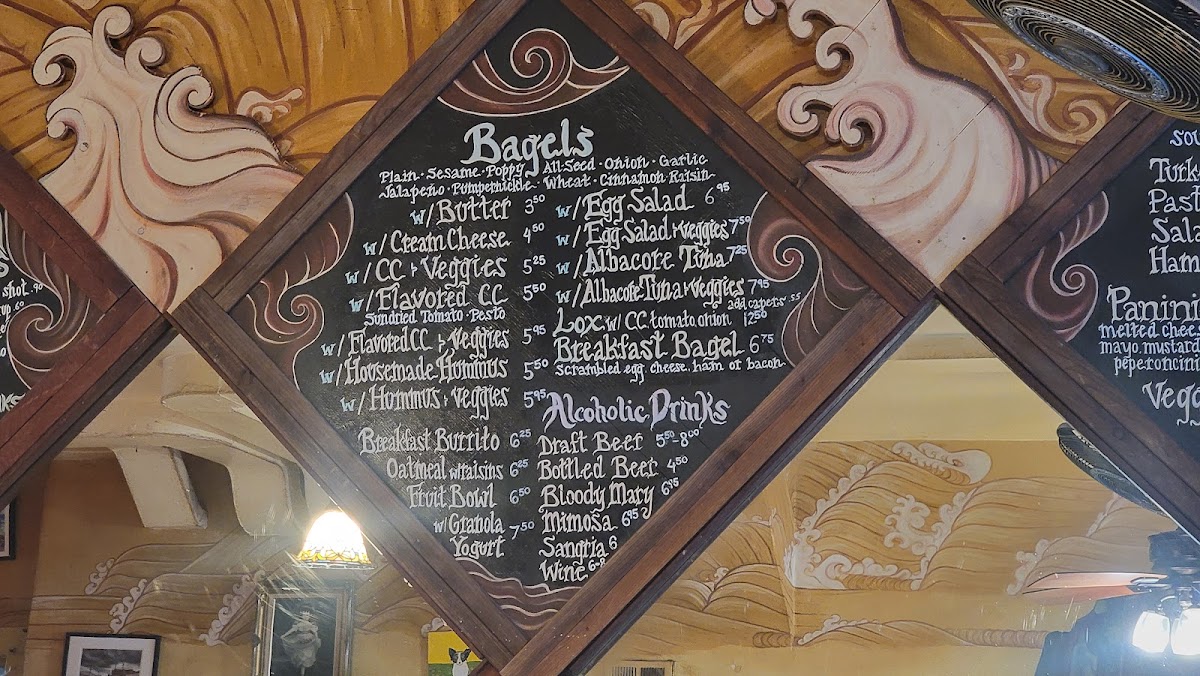 shot .90
Bagels
Plain · Sesame · Poppy · All-Seed · Onion · Garlic
Jalapeño · Pumpernickle · Wheat · Cinnamon Raisin
w/Butter 3.50
w/Cream Cheese 4.50
w/CC + Veggies 5.25
w/Flavored CC 5.50
Sundried Tomato · Pesto
w/Flavored CC + Veggies 5.95
w/Housemade Hummus 5.50
w/Hummus + Veggies 5.95
Breakfast Burrito 6.25
Oatmeal w/raisins 6.25
Fruit Bowl 6.50
w/Granola 7.50
Yogurt
w/Egg Salad 6.95
w/Egg Salad + Veggies 7.50
w/Albacore Tuna 7.25
w/Albacore Tuna + Veggies 7.95
add capers .55
Lox w/CC, tomato, onion 12.50
Breakfast Bagel 6.75
Scrambled egg, cheese, ham or bacon
Alcoholic Drinks
Draft Beer 5.50-8.00
Bottled Beer 4.50
Bloody Mary 6.95
Mimosa 6.95
Sangria 6
Wine 6-8
SOU
Turk
Past
Sala
Ham
Panini
melted chees
mayo, mustard
peperoncini
Vegg